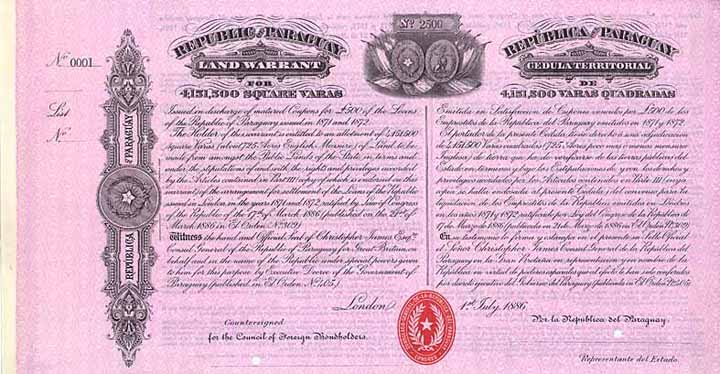 No. 0001
List
No.
REPÚBLICA DEL PARAGUAY
No. 2500
REPUBLIC OF PARAGUAY
LAND WARRANT
FOR
4,151,500 SQUARE VARAS
Issued in discharge of matured Coupons for £500 of the Loans
of the Republic of Paraguay issued in 1871 and 1872.
The Holder of this warrant is entitled to an allotment of 4,151,500
Square Varas (about 725 Acres English Measure) of Land to be
made from amongst the Public Lands of the State in terms and
under the stipulations of and with the rights and privileges accorded
by the Articles contained in Part III (copy of which is endorsed on this
warrant) of the arrangement for settlement of the Loans of the Republic
issued in London, in the years 1871 and 1872, ratified by Law of Congress
of the Republic of the 17th of March 1886 (published on the 21st of
March 1886 in El Orden No. 309)
Witness the hand and Official Seal of Christopher James Esqre.
Consul General of the Republic of Paraguay for Great Britain, on
behalf and in the name of the Republic under special powers given
to him for this purpose by Executive Decree of the Government of
Paraguay (published in El Orden No. 405)
REPÚBLICA DEL PARAGUAY
CEDULA TERRITORIAL
DE
4,151,500 VARAS QUADRADAS
Emitida en Satisfaccion de Cupones vencidos por £500 de los
Emprestitos de la República del Paraguay emitidos en 1871 y 1872.
El portador de la presente Cedula tiene derecho á una adjudicacion
de 4,151,500 Varas cuadradas (725 Acres poco mas ó menos medida
Inglesa) de tierra que ha de verificarse de las tierras publicas del
Estado en terminos y bajo las Estipulaciones de y con los derechos y
privilegios acordados por los Articulos contenidos en Parte III (cuya
copia se halla endosada al presente Cedula) del convenio para la
liquidacion de los Emprestitos de la República emitidos en Londres
en los años 1871 y 1872 ratificado por Ley del Congreso de la República de
17 de Marzo de 1886 (publicada en 21 de Marzo de 1886 in El Orden No. 309)
En su testimonio lo firma y estampa en el presente el Sello Oficial
el Señor Christopher James Consul General de la República del
Paraguay en la Gran Bretaña en representacion y en nombre de la
República en virtud de poderes especiales que al efecto le han sido conferidos
por decreto ejecutivo del Gobierno del Paraguay (publicado en El Orden No. 405)
London, 1st July, 1886.
Countersigned
for the Council of Foreign Bondholders.
Por la República del Paraguay.
Representante del Estado.